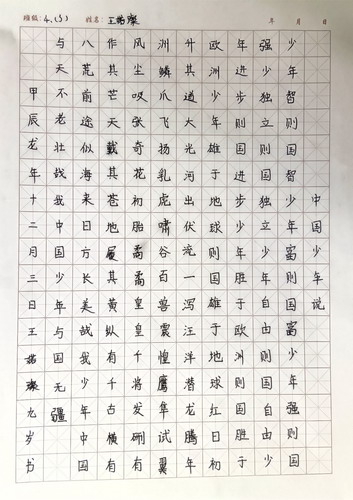 班级: 4.(5) 姓名: 王若璨 年 月 日
中国少年说
少年智则国智少年富则国富少年强则国
强少独立则国独立少年自由则国自由少
年进步则国进步少年胜于欧洲则国胜于
欧洲少年雄于地球则国雄于地球红日初
升其道大光河出伏流一泻汪洋潜龙腾年
洲鳞爪飞扬乳虎啸谷百兽震惶鹰隼试翼
风尘吸张奇花初胎矞矞皇皇干将发硎有
作其芒天戴其苍地履其黄纵有千古横有
八荒前途似海来日方长美战我少年中国
与天不老壮战我中国少年与国无疆
甲辰龙年十二月三日王若璨九岁书